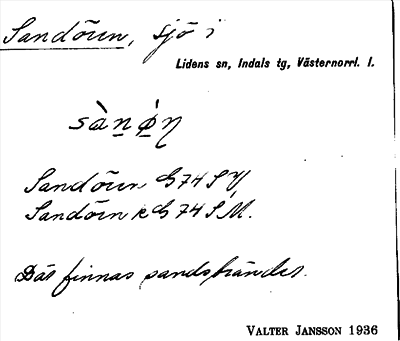 Sandöun, sjö i
Lidens sn, Indals tg, Västernorrl. l.
sàn̲ǿ̲ŋ
Sandöun G 74 SV
Sandöen k G 74 S M.
Där finnas sandstränder.
VALTER JANSSON 1936